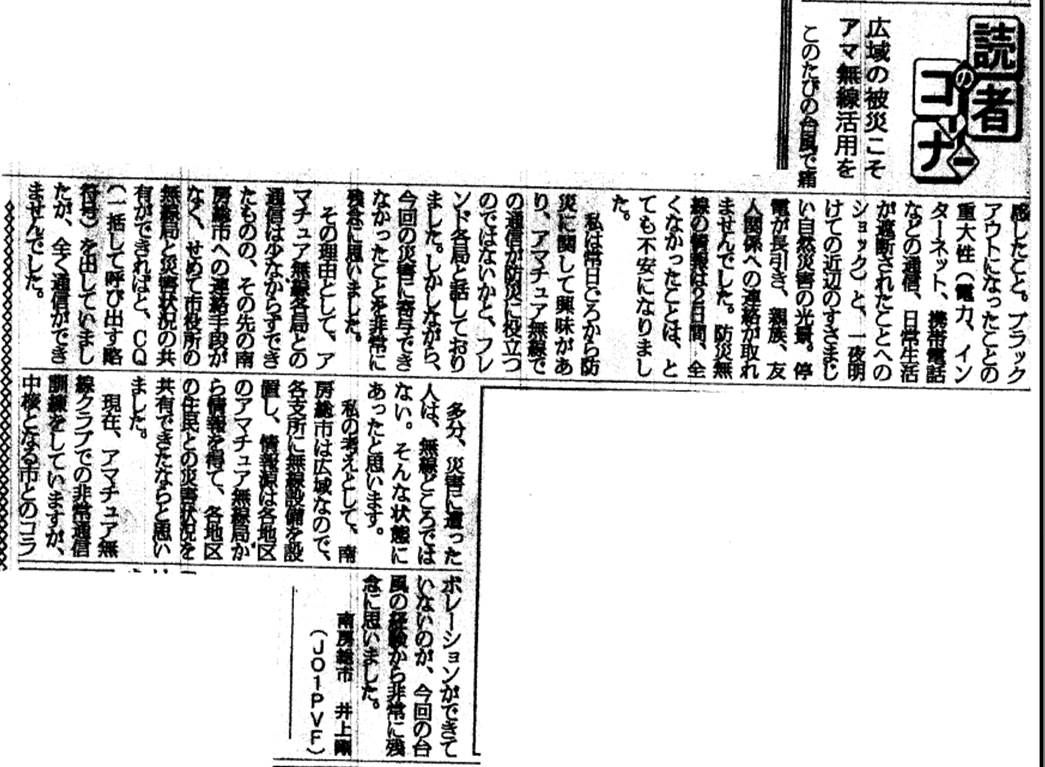 読者のコーナー
広域の被災こそ
アマ無線活用を
このたびの台風で痛
感したこと。ブラック
アウトになったことの
重大性(電力、イン
ターネット、携帯電話
などの通信、日常生活
が遮断されたことへの
ショック)と、一夜明
けての近辺のすさまじ
い自然災害の光景。停
電が長引き、親族、友
人関係への連絡が取れ
ませんでした。防災無
線の情報は2日間、全
くなかったことは、と
ても不安になりまし
た。
私は常日ごろから防
災に関して興味があ
り、アマチュア無線で
の通信が防災に役立つ
のではないかと、フレ
ンド各局と話しており
ました。しかしながら、
今回の災害に寄与でき
なかったことを非常に
残念に思いました。
その理由として、ア
マチュア無線各局との
通信は少なからずでき
たものの、その先の南
房総市への連絡手段が
なく、せめて市役所の
無線局と災害状況の共
有ができればと、CQ
(一括して呼び出す略
符号)を出していまし
たが、全く通信ができ
ませんでした。
多分、災害に遭った
人は、無線どころでは
ない。そんな状態に
あったと思います。
私の考えとして、南
房総市は広域なので、
各支所に無線設備を設
置し、情報源は各地区
のアマチュア無線局か
ら情報を得て、各地区
の住民との災害状況を
共有できたならと思い
ました。
現在、アマチュア無
線クラブでの非常通信
訓練をしていますが、
中核となる市とのコラ
ボレーションができて
いないのが、今回の台
風の経験から非常に残
念に思いました。
南房総市 井上剛
(JO1PVF)